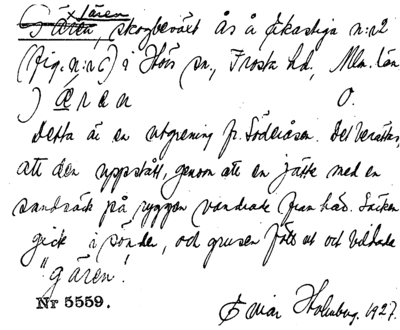 × Jären
Jären, skogbeväxt ås å Åkastiga n:r 2
(fig. n:r 6) i Hörs sn, Frosta hd, Mlm. län
) æren O.
Detta är en utgrening fr. Söderåsen. Det berättas,
att den uppstått, genom att en jätte med en
sandsäck på ryggen vandrade fram här. Säcken
gick i sönder, och grusen föll ut och bildade
"gären".
Nr 5559.
Einar Holmberg. 1927.